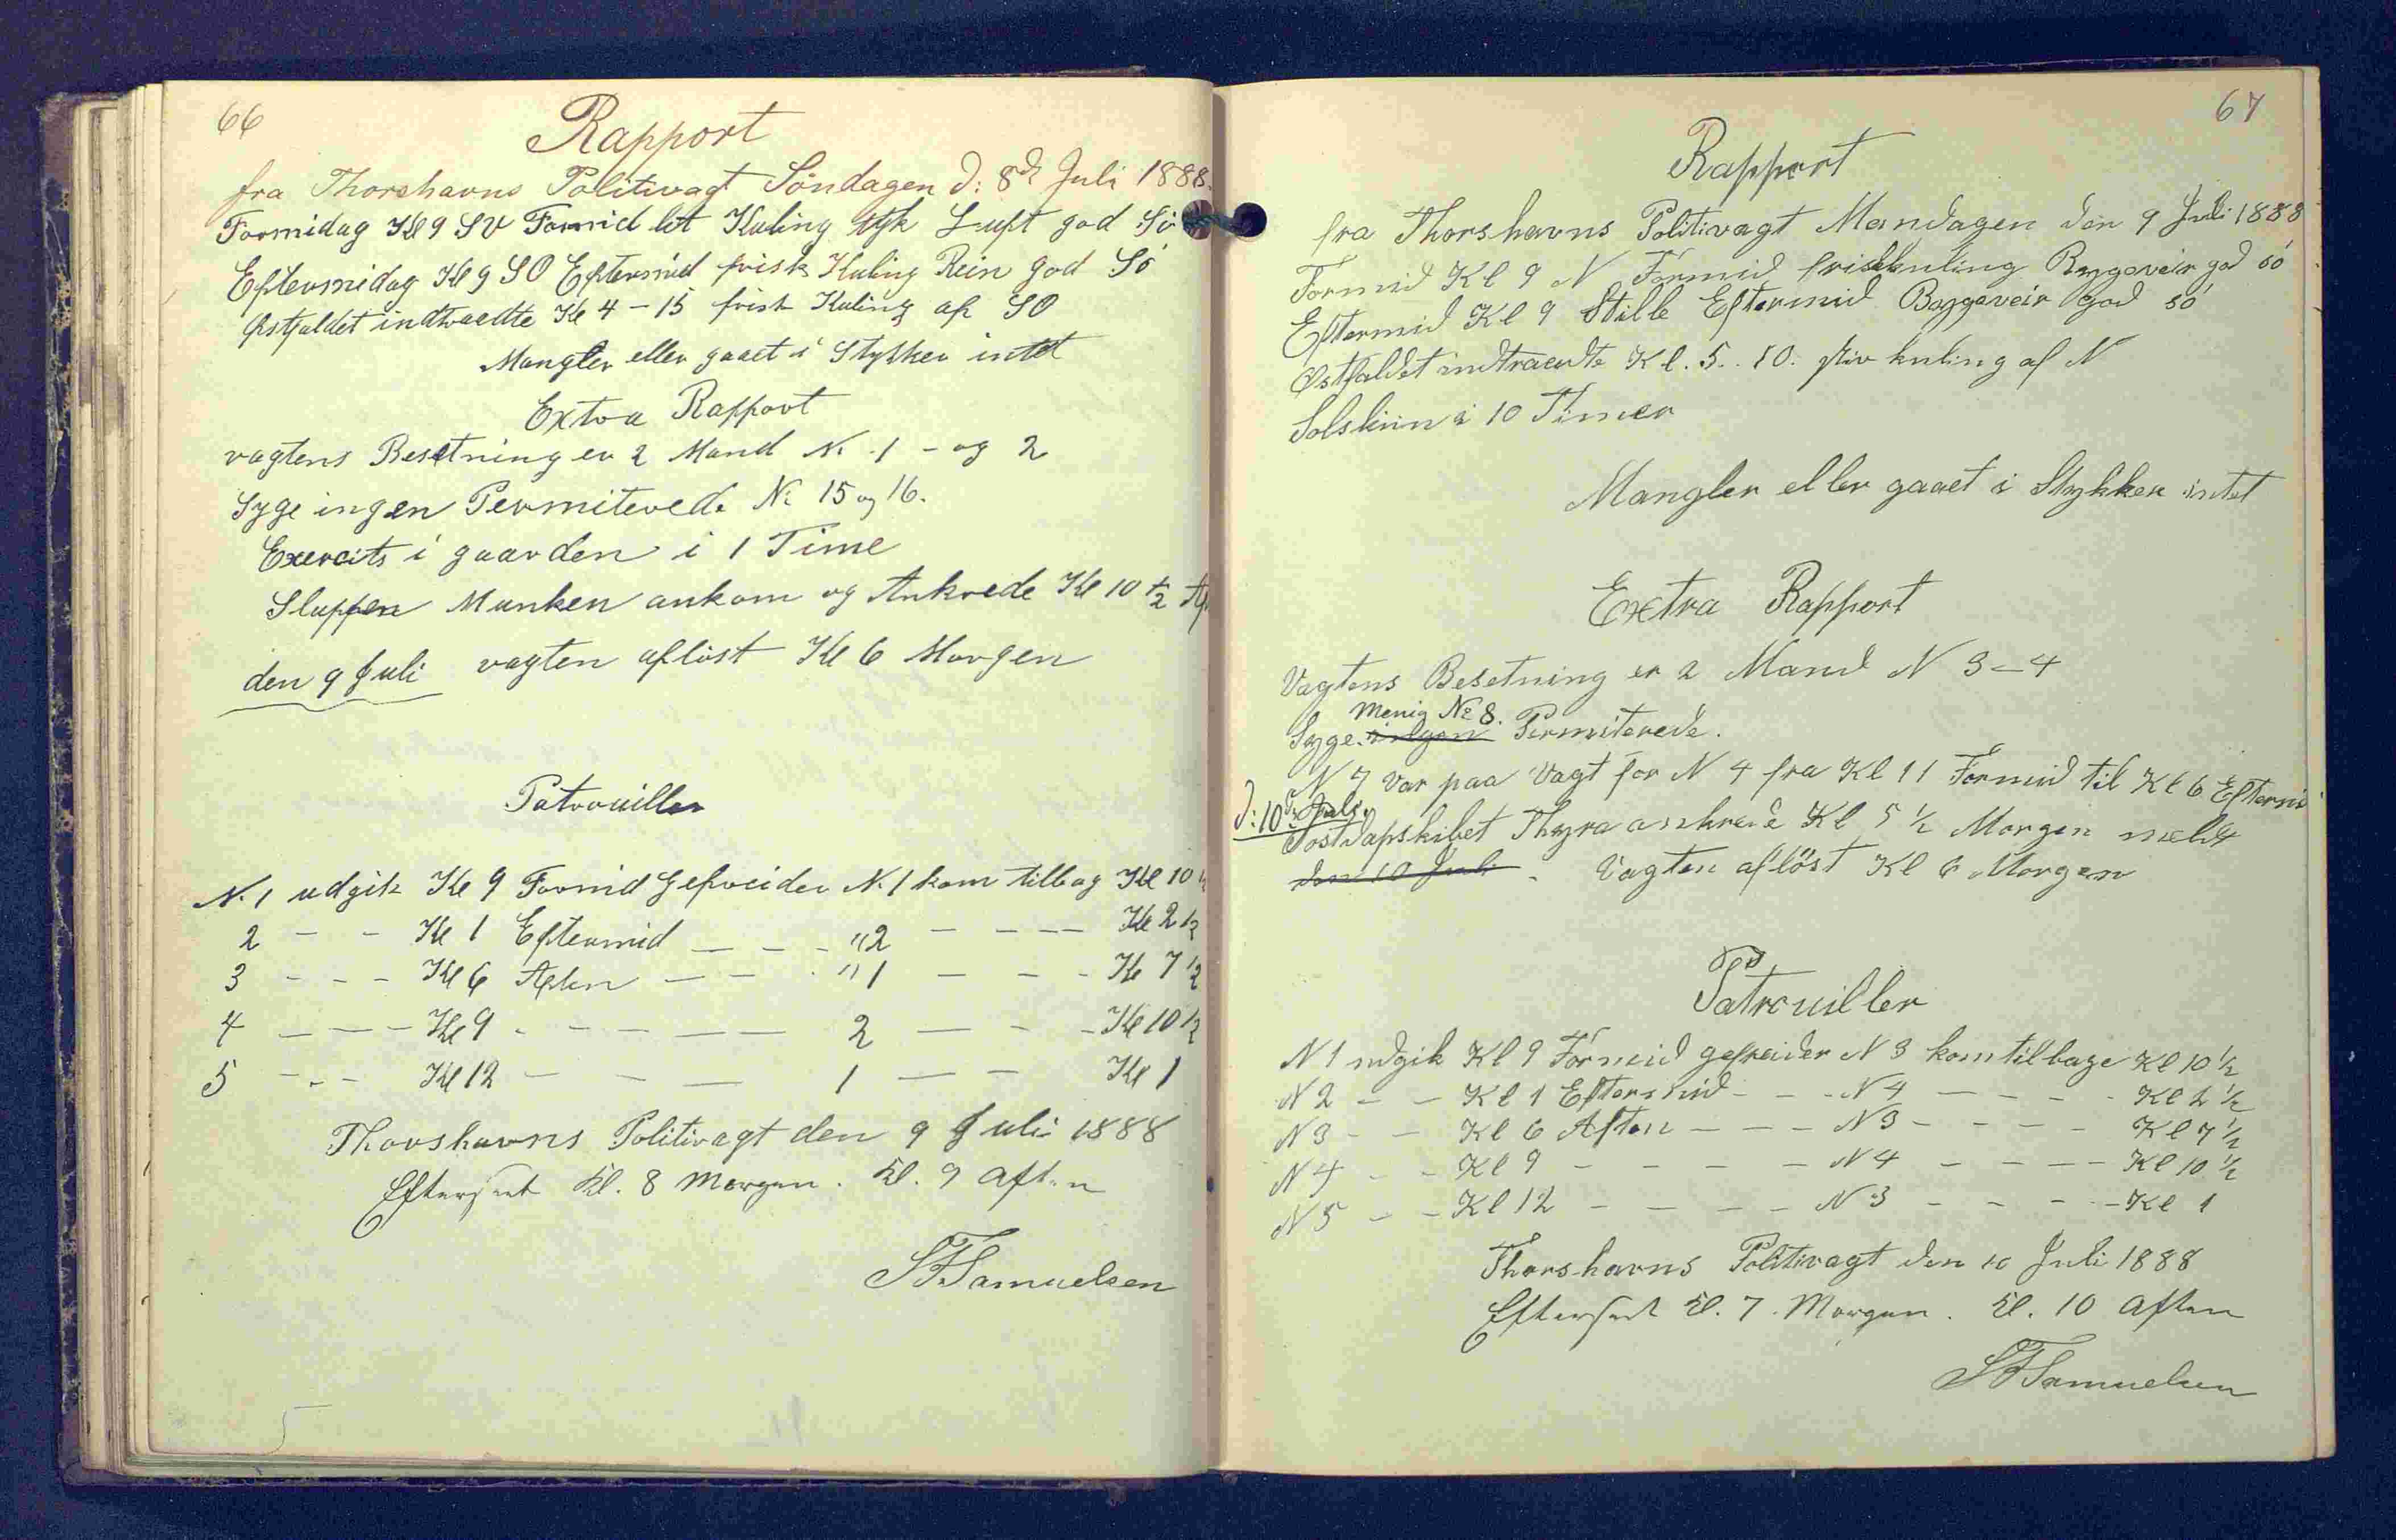 66
Rapport
fra Thorshavns Politivagt Söndagen d: 8de Juli 1888.
Formidag Kl 9 SV Formid let Kuling tyk Luft god Sö
Eftermidag Kl 9 SO Eftermid frisk Kuling Rein god Sö
Østfaldet indtraedte Kl 4-15 frisk Kuling af SO
Mangler eller gaaet i Stykker intet
Extra Rapport
vagtens Besetning er 2 Mand No 1 - og 2
Syge ingen Permiterede No 15 og 16.
Exercits i gaarden i 1 Time
Sluppen Munken ankom og Ankrede Kl 10 1/2 Af
den 9 Juli vagten aflöst Kl 6 Morgen
Patrouiller
N. 1 udgik Kl 9 Formid Gefreider N. 1 kom tilbag Kl 10 1/2
2 - - Kl 1 Eftermid - - - "2 - - - - Kl 2 1/2
3 - - - Kl 6 Aften - - - "1 - - - Kl 7 1/2
4 - - - Kl 9 - - - - - 2 - - - Kl 10 1/2
5 - - - Kl 12 - - - 1 - - Kl 1
Thorshavns Politivagt den 9 Juli 1888
Efterseet Kl. 8 Morgen. Kl. 9 Aften
SFSamuelsen
67
Rapport
fra Thorshavns Politivagt Mandagen den 9 Juli 1888
Formid Kl 9 N Formid friskkuling Bygeveir god sö
Eftermid Kl 9 Stille Eftermid Bygeveir god sö
Østfaldet indtraedte Kl. 5..10. stiv kuling af N
Solskiin i 10 Timer
Mangler eller gaaet i Stykker intet
Extra Rapport
Vagtens Besetning er 2 Mand N 3-4
Menig No 8.
Syge. ingen Permiterede.
N 7 var paa Vagt for N 4 fra Kl 11 Formid til Kl 6 Eftermid
d: 10de Juli.
Postdapskibet Thyra ankrede Kl 5 1/2 Morgen
den 10 Juli. Vagten aflöst Kl 6 Morgen
Patrouiller
N 1 udgik Kl 9 Formid gefreider N 3 kom tilbage Kl 10 1/2
N 2 - - Kl 1 Eftermid - - - N 4 - - - - Kl 2 1/2
N 3 - - Kl 6 Aften - - - N 3 - - - - Kl 7 1/2
N 4 - - Kl 9 - - - - - N 4 - - - - Kl 10 1/2
N 5 - - Kl 12 - - - - N 3 - - - - Kl 1
Thorshavns Politivagt den 10 Juli 1888
Efterseet Kl. 7. Morgen. Kl. 10 Aften
SFSamuelsen